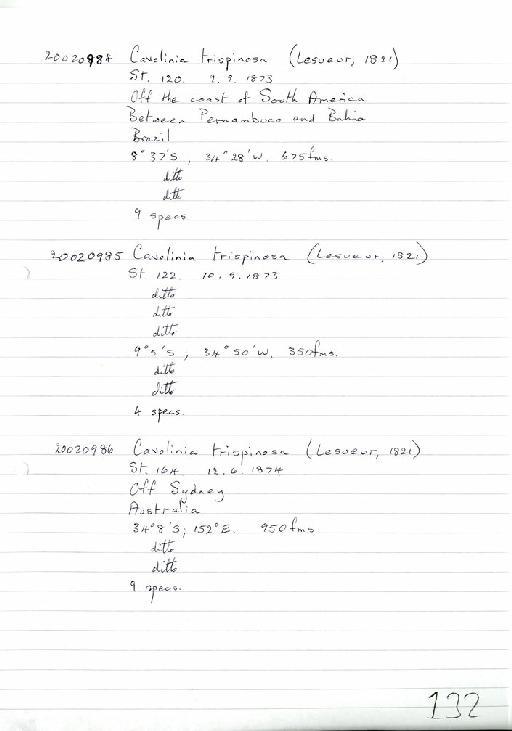 20020984 Cavolinia trispinosa (Lesueur, 1821)
St. 120. 9.9.1873
Off the coast of South America
Between Pernambuco and Bahia
Brazil
8°37'S, 34°28'W, 675fms.
ditto
ditto
9 specs
20020985 Cavolinia trispinosa (Lesueur, 1821)
St. 122. 10.9.1873
ditto
ditto
ditto
9°5'S, 34°50'W, 350fms.
ditto
ditto
4 specs.
20020986 Cavolinia trispinosa (Lesueur, 1821)
St. 164. 12.6.1874
Off Sydney
Australia
34°8'S; 152°E. 950fms
ditto
ditto
9 specs.
132